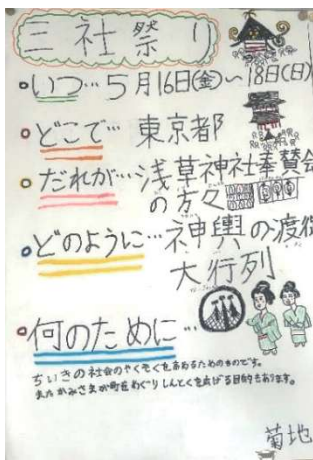 三社祭り
いつ…5月16日(金)〜18日(日)
どこで… 東京都
だれが…浅草神社奉賛会
の方々
どのように…神輿の渡御
大行列
何のために…
ちいきの社会のやくそくをあらわすためのものです。
またかみさまが町をめぐりしんとくを広げる目的もあります。
菊地